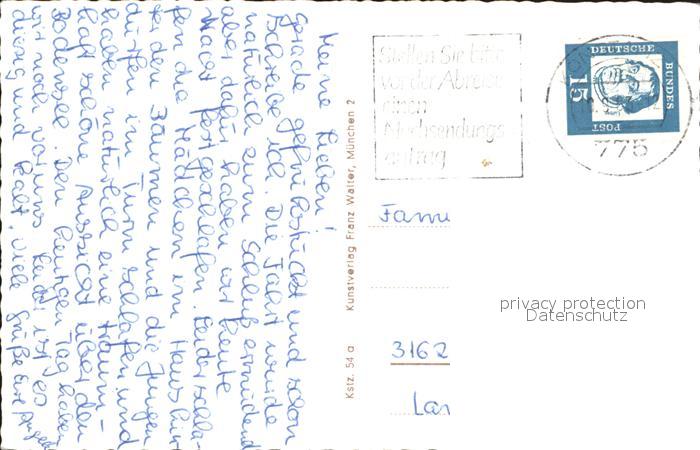 Meine Lieben!
Gerade gefrühstückt und schon
schreibe ich. Die Fahrt wurde
natürlich zum Schluß ermüdend
aber dafür haben wir heute
Nacht fest geschlafen. Leider schla-
fen die Mädchen im Haus hin-
ter den Bäumen und die Jungen
dürfen im Turm schlafen und
haben natürlich eine traum-
haft schöne Aussicht über den
Bodensee. Den heutigen Tag haben
wir noch vor uns. Leider ist es
diesig und kalt. Viele Grüße Eure
Kstz. 54 a Kunstverlag Franz Walter, München 2
Stellen Sie bitte
vor der Abreise
einen
Nachsendungs-
antrag
DEUTSCHE
BUNDES
POST
15
775
Fami
3162
Lan
privacy protection
Datenschutz